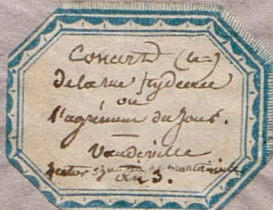 Concert (le)
de la rue Feydeau
ou
l'agrément du jour.
Vaudeville
an 3.